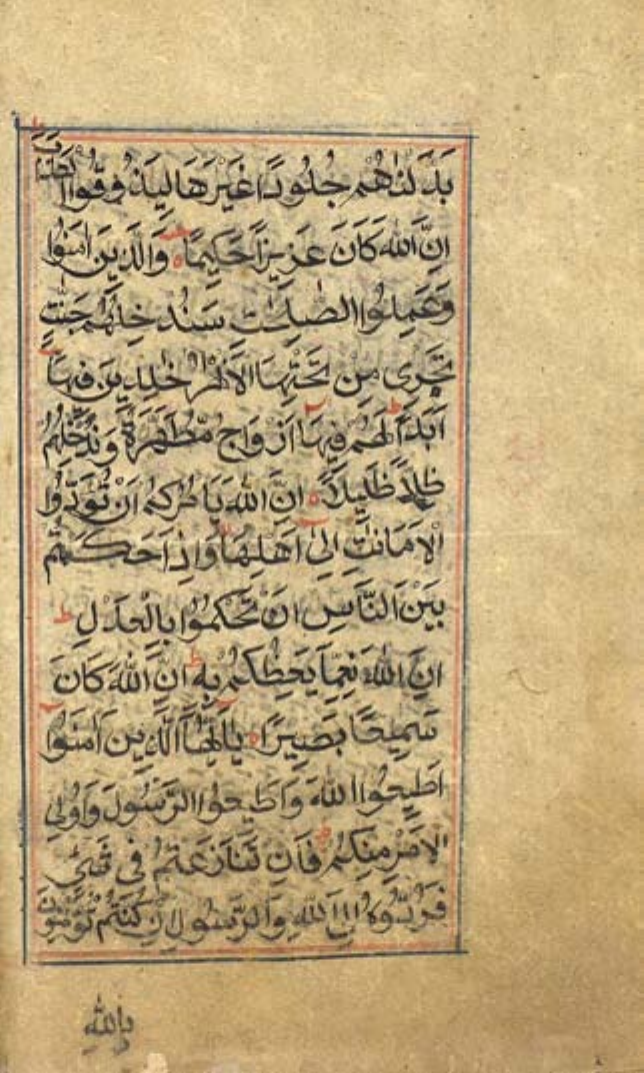 بَدَّلْنٰهُمْ جُلُودًا غَيْرَهَا لِيَذُوقُوا الْعَذَابَ
اِنَّ اللّٰهَ كَانَ عَزِيزًا حَكِيمًا وَالَّذِينَ اٰمَنُوا
وَعَمِلُوا الصّٰلِحٰتِ سَنُدْخِلُهُمْ جَنّٰتٍ
تَجْرِى مِنْ تَحْتِهَا الْاَنْهٰرُ خٰلِدِينَ فِيهَا
اَبَدًا لَهُمْ فِيهَا اَزْوَاجٌ مُطَهَّرَةٌ وَنُدْخِلُهُمْ
ظِلًّا ظَلِيلًا اِنَّ اللّٰهَ يَاْمُرُكُمْ اَنْ تُؤَدُّوا
الْاَمَانٰتِ اِلٰى اَهْلِهَا وَاِذَا حَكَمْتُمْ
بَيْنَ النَّاسِ اَنْ تَحْكُمُوا بِالْعَدْلِ ط
اِنَّ اللّٰهَ نِعِمَّا يَعِظُكُمْ بِهِ ط اِنَّ اللّٰهَ كَانَ
سَمِيعًا بَصِيرًا يٰاَيُّهَا الَّذِينَ اٰمَنُوا
اَطِيعُوا اللّٰهَ وَاَطِيعُوا الرَّسُولَ وَاُولِى
الْاَمْرِ مِنْكُمْ فَاِنْ تَنَازَعْتُمْ فِى شَىْءٍ
فَرُدُّوهُ اِلَى اللّٰهِ وَالرَّسُولِ اِنْ كُنْتُمْ تُؤْمِنُونَ
بِاللّٰهِ